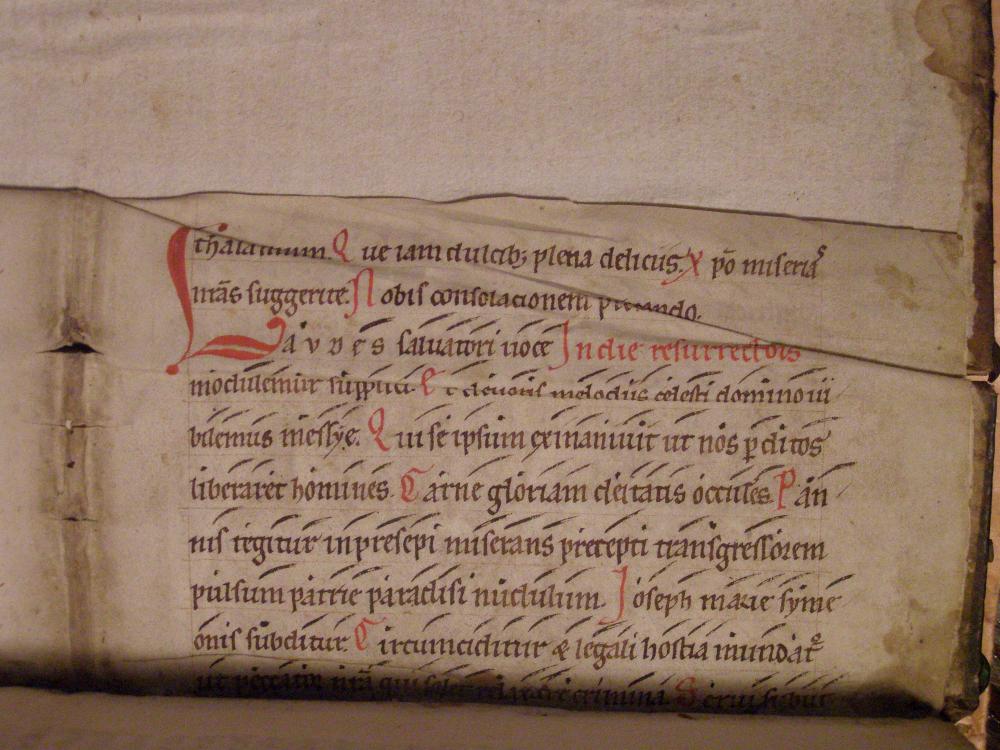 thalamum. Que iam dulcib; plena deliciis. Xpo miseriaˢ
nrās suggerite. Nobis consolacionem
Lavdes salvatori uoce In die resurrectois
modulemur supplici. Et deuotis melodiis celesti domino iu
bilemus messye. Qui se ipsum exinaniuit ut nos pditos
liberaret homines. Carne gloriam deitatis occules. Pan
nis tegitur in presepi miserans precepti transgressorem
pulsum patrie paradisi nudulum. Ioseph marie syme
onis subditur. Circumciditur & legali hostia mundat̉
ut peccator nrā qui solet relaxare crimina. Serui subiit